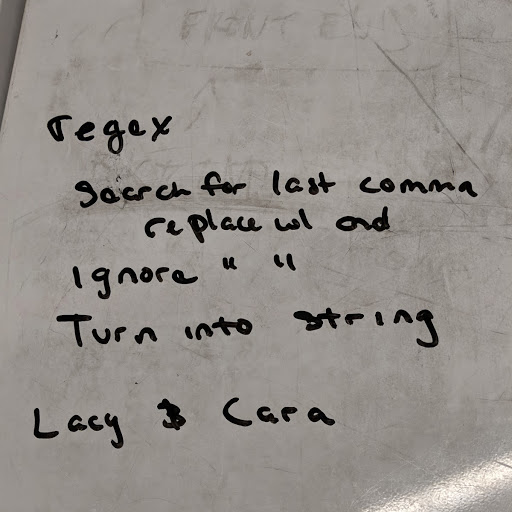 regex
search for last comma
replace w/ and
Ignore " "
Turn into string
Lacy & Cara